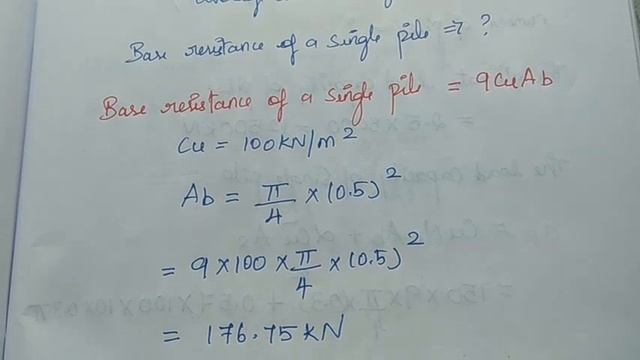 Base resistance of a single pile => ?
Base resistance of a single pile = 9CuAb
Cu = 100KN/m²
Ab = π/4 × (0.5)²
= 9×100 × π/4 × (0.5)²
= 176.75KN